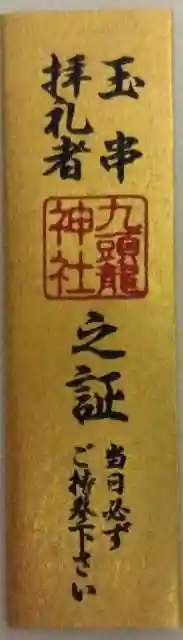 玉串
拝礼者
九頭龍
神社
之証
当日必ず
ご持参下さい